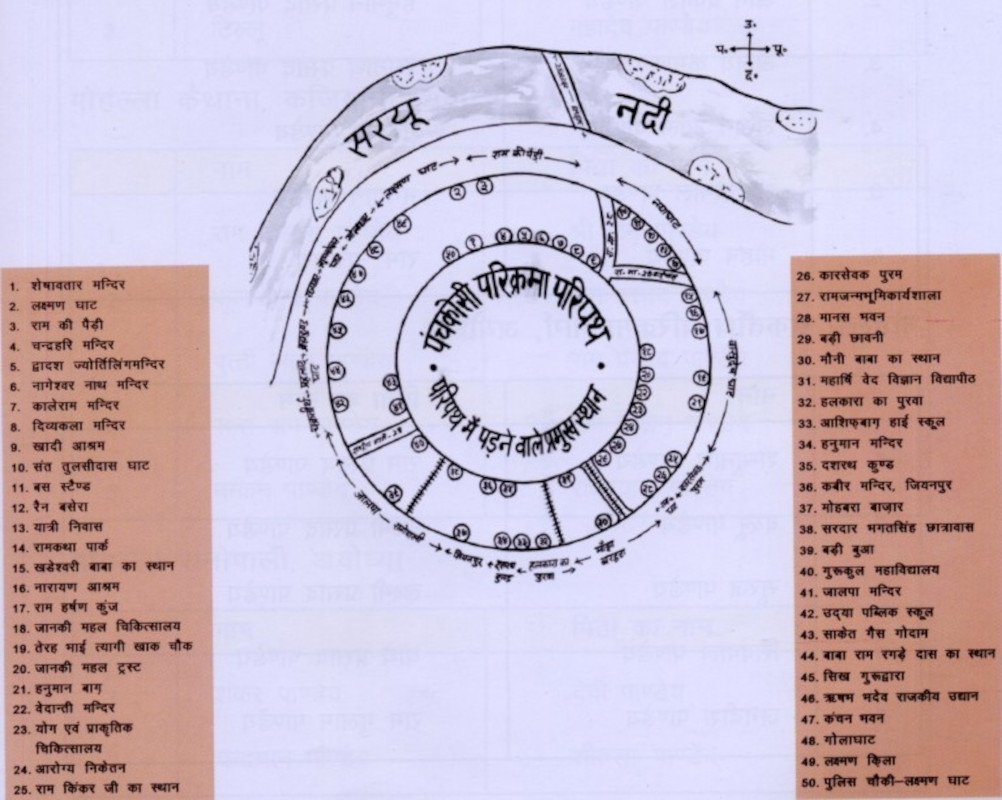 उ.
प. पू.
द.
सरयू नदी
लक्ष्मण घाट
राम की पैड़ी
नयाघाट
पंचकोसी परिक्रमा परिपथ
परिपथ में पड़ने वाले प्रमुख स्थान
1. शेषावतार मन्दिर
2. लक्ष्मण घाट
3. राम की पैड़ी
4. चन्द्रहरि मन्दिर
5. द्वादश ज्योर्तिलिंगमन्दिर
6. नागेश्वर नाथ मन्दिर
7. कालेराम मन्दिर
8. दिव्यकला मन्दिर
9. खादी आश्रम
10. संत तुलसीदास घाट
11. बस स्टैण्ड
12. रैन बसेरा
13. यात्री निवास
14. रामकथा पार्क
15. खडेश्वरी बाबा का स्थान
16. नारायण आश्रम
17. राम हर्षण कुंज
18. जानकी महल चिकित्सालय
19. तेरह भाई त्यागी खाक चौक
20. जानकी महल ट्रस्ट
21. हनुमान बाग़
22. वेदान्ती मन्दिर
23. योग एवं प्राकृतिक
चिकित्सालय
24. आरोग्य निकेतन
25. राम किंकर जी का स्थान
26. कारसेवक पुरम
27. रामजन्मभूमिकार्यशाला
28. मानस भवन
29. बढ़ी छावनी
30. मौनी बाबा का स्थान
31. महार्षि वेद विज्ञान विद्यापीठ
32. हलकारा का पुरवा
33. आशिफ़बाग़ हाई स्कूल
34. हनुमान मन्दिर
35. दशरथ कुण्ड
36. कबीर मन्दिर, जियनपुर
37. मोहबरा बाज़ार
38. सरदार भगतसिंह छात्रावास
39. बढ़ी बुआ
40. गुरूकुल महाविद्यालय
41. जालपा मन्दिर
42. उद्या पब्लिक स्कूल
43. साकेत गैस गोदाम
44. बाबा राम रगड़े दास का स्थान
45. सिख गुरूद्वारा
46. ऋषम भदेव राजकीय उद्यान
47. कंचन भवन
48. गोलाघाट
49. लक्ष्मण क़िला
50. पुलिस चौकी–लक्ष्मण घाट